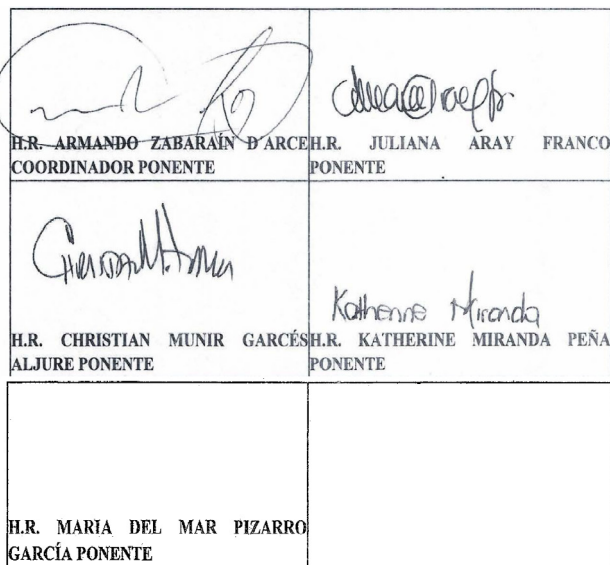 H.R. ARMANDO ZABARAÍN D'ARCE
COORDINADOR PONENTE
H.R. JULIANA ARAY FRANCO
PONENTE
H.R. CHRISTIAN MUNIR GARCÉS
ALJURE PONENTE
Katherine Miranda
H.R. KATHERINE MIRANDA PEÑA
PONENTE
H.R. MARIA DEL MAR PIZARRO
GARCÍA PONENTE